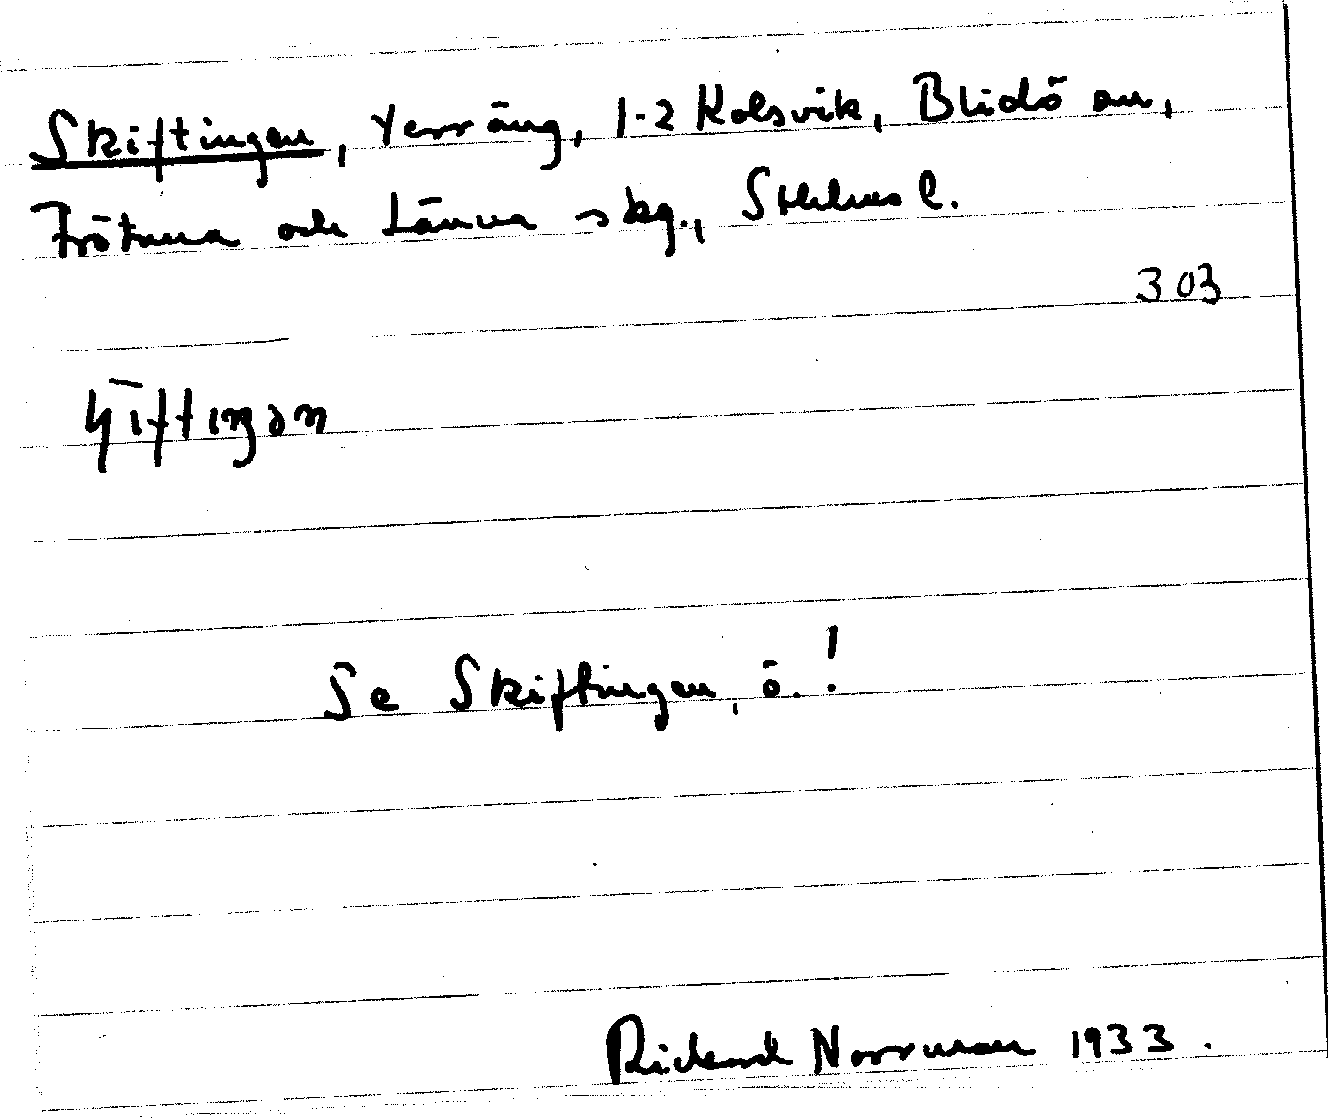 Skiftingen, terräng, 1-2 Kolsvik, Blidö sn,
Frötuna och Länna skg., Sthlms l.
303
Se Skiftingen, ö.!
Rickard Norrman 1933.